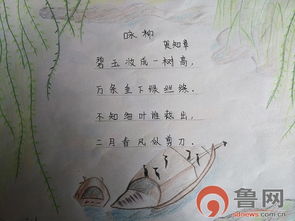 咏柳
贺知章
碧玉妆成一树高，
万条垂下绿丝绦。
不知细叶谁裁出，
二月春风似剪刀。
鲁网
sdnews.com.cn